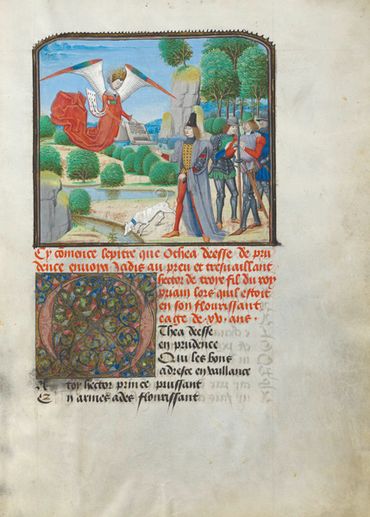 Cy comence lepitre que Othea deesse de pru
dence envoya Jadis au preu et tresvaillant
hector de troye fil du roy
priam lors quil estoit
en son flourissant
eage de .xv. ans.
Othea deesse
en prudence
Qui les bons
adresce en vaillance
A toy hector prince puissant
En armes ades flourissant